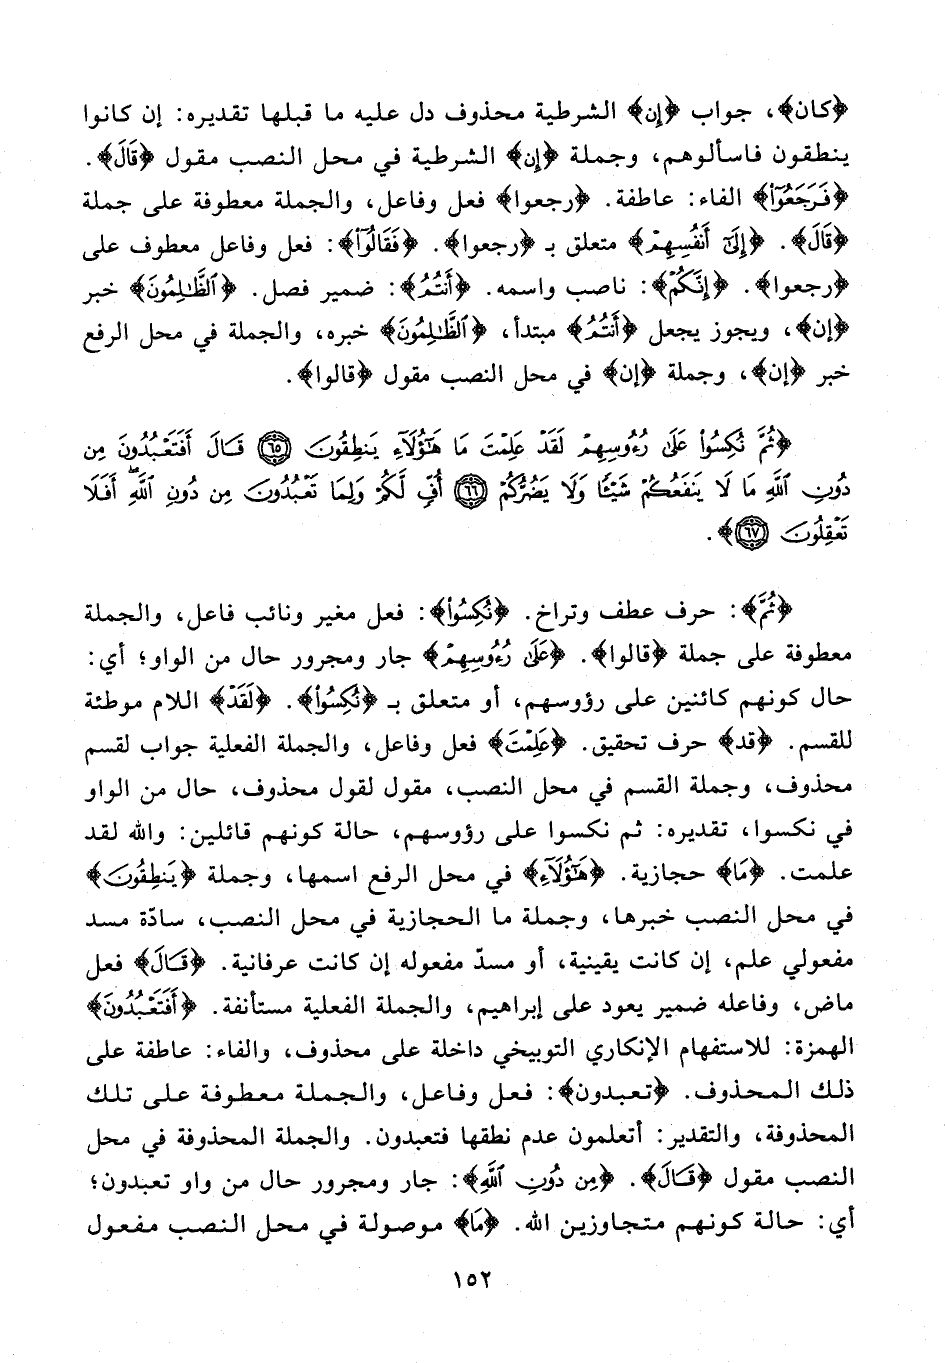 ﴿كان﴾، جواب ﴿إن﴾ الشرطية محذوف دل عليه ما قبلها تقديره: إن كانوا
ينطقون فاسألوهم، وجملة ﴿إن﴾ الشرطية في محل النصب مقول ﴿قَالَ﴾.
﴿فَرَجَعُوٓا۟﴾ الفاء: عاطفة. ﴿رجعوا﴾ فعل وفاعل، والجملة معطوفة على جملة
﴿قَالَ﴾. ﴿إِلَىٰٓ أَنفُسِهِمْ﴾ متعلق بـ ﴿رجعوا﴾. ﴿فَقَالُوٓا۟﴾: فعل وفاعل معطوف على
﴿رجعوا﴾. ﴿إِنَّكُمْ﴾: ناصب واسمه. ﴿أَنتُمُ﴾: ضمير فصل. ﴿ٱلظَّـٰلِمُونَ﴾ خبر
﴿إن﴾، ويجوز يجعل ﴿أَنتُمُ﴾ مبتدأ، ﴿ٱلظَّـٰلِمُونَ﴾ خبره، والجملة في محل الرفع
خبر ﴿إن﴾، وجملة ﴿إن﴾ في محل النصب مقول ﴿قالوا﴾.
﴿ثُمَّ نُكِسُوا۟ عَلَىٰ رُءُوسِهِمْ لَقَدْ عَلِمْتَ مَا هَـٰٓؤُلَآءِ يَنطِقُونَ ٦٥ قَالَ أَفَتَعْبُدُونَ مِن
دُونِ ٱللَّهِ مَا لَا يَنفَعُكُمْ شَيْـًٔا وَلَا يَضُرُّكُمْ ٦٦ أُفٍّ لَّكُمْ وَلِمَا تَعْبُدُونَ مِن دُونِ ٱللَّهِ ۖ أَفَلَا
تَعْقِلُونَ ٦٧﴾.
﴿ثُمَّ﴾: حرف عطف وتراخ. ﴿نُكِسُوا۟﴾: فعل مغير ونائب فاعل، والجملة
معطوفة على جملة ﴿قالوا﴾. ﴿عَلَىٰ رُءُوسِهِمْ﴾ جار ومجرور حال من الواو؛ أي:
حال كونهم كائنين على رؤوسهم، أو متعلق بـ ﴿نُكِسُوا۟﴾. ﴿لَقَدْ﴾ اللام موطئة
للقسم. ﴿قد﴾ حرف تحقيق. ﴿عَلِمْتَ﴾ فعل وفاعل، والجملة الفعلية جواب لقسم
محذوف، وجملة القسم في محل النصب، مقول لقول محذوف، حال من الواو
في نكسوا، تقديره: ثم نكسوا على رؤوسهم، حالة كونهم قائلين: والله لقد
علمت. ﴿مَا﴾ حجازية. ﴿هَـٰٓؤُلَآءِ﴾ في محل الرفع اسمها، وجملة ﴿يَنطِقُونَ﴾
في محل النصب خبرها، وجملة ما الحجازية في محل النصب، سادّة مسد
مفعولي علم، إن كانت يقينية، أو مسدّ مفعوله إن كانت عرفانية. ﴿قَالَ﴾ فعل
ماض، وفاعله ضمير يعود على إبراهيم، والجملة الفعلية مستأنفة. ﴿أَفَتَعْبُدُونَ﴾
الهمزة: للاستفهام الإنكاري التوبيخي داخلة على محذوف، والفاء: عاطفة على
ذلك المحذوف. ﴿تعبدون﴾: فعل وفاعل، والجملة معطوفة على تلك
المحذوفة، والتقدير: أتعلمون عدم نطقها فتعبدون. والجملة المحذوفة في محل
النصب مقول ﴿قَالَ﴾. ﴿مِن دُونِ ٱللَّهِ﴾: جار ومجرور حال من واو تعبدون؛
أي: حالة كونهم متجاوزين الله. ﴿مَا﴾ موصولة في محل النصب مفعول
١٥٢